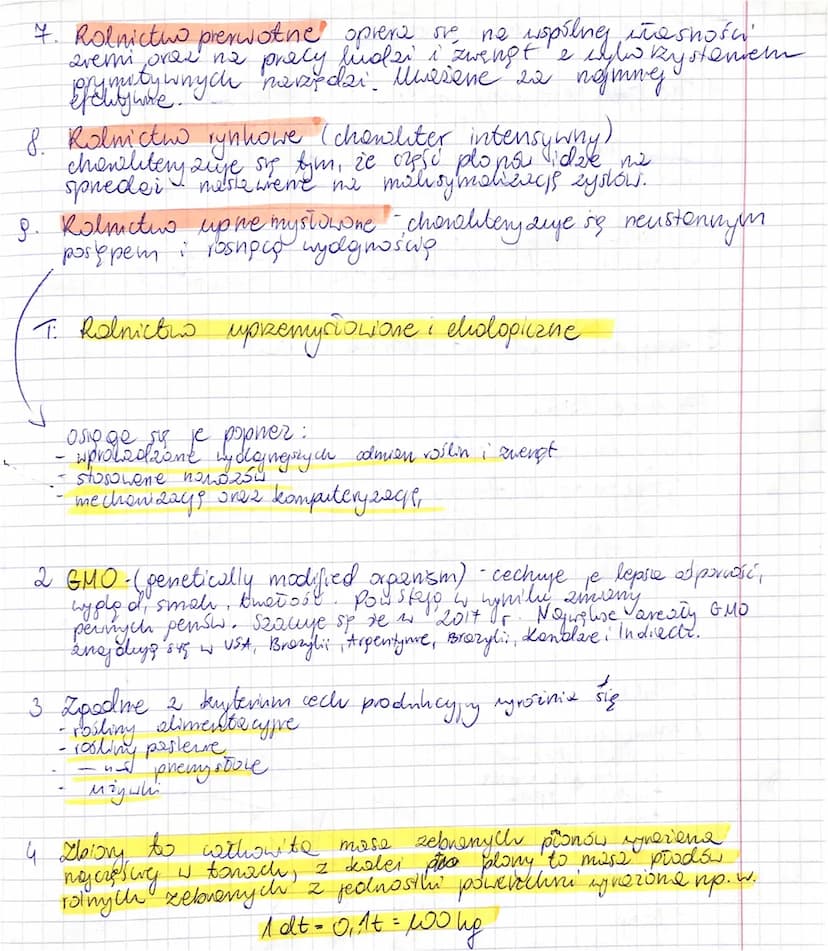 7. Rolnictwo pierwotne opiera się na wspólnej własności
ziemi oraz na pracy ludzi i zwierząt z wykorzystaniem
prymitywnych narzędzi. Uważane za najmniej
efektywne.
8. Rolnictwo rynkowe (charakter intensywny)
charakteryzuje się tym, że część plonów idzie na
sprzedaż - nastawienie na maksymalizację zysków.
9. Rolnictwo uprzemysłowione - charakteryzuje się nieustannym
postępem i rosnącą wydajnością
T: Rolnictwo uprzemysłowione i ekologiczne
osiąga się je poprzez:
- wprowadzanie wydajniejszych odmian roślin i zwierząt
- stosowanie nawozów
- mechanizację oraz komputeryzację,
2 GMO - (genetically modified organism) - cechuje je lepsza odporność,
wygląd, smak, trwałość. Powstają w wyniku zmiany
pewnych genów. Szacuje się że w 2017 r. Największe areały GMO
znajdują się w USA, Brazylii, Argentynie, Brazylii, Kanadzie i Indiach.
3 Zgodnie z kryterium cech produkcyjnych wyróżnia się
- rośliny alimentacyjne
- rośliny pastewne
- —u— przemysłowe
- używki
4 Zbiory to całkowita masa zebranych plonów wyrażona
najczęściej w tonach, z kolei plony to masa płodów
rolnych zebranych z jednostki powierzchni wyrażona np. w.
1 dt = 0,1t = 100 kg